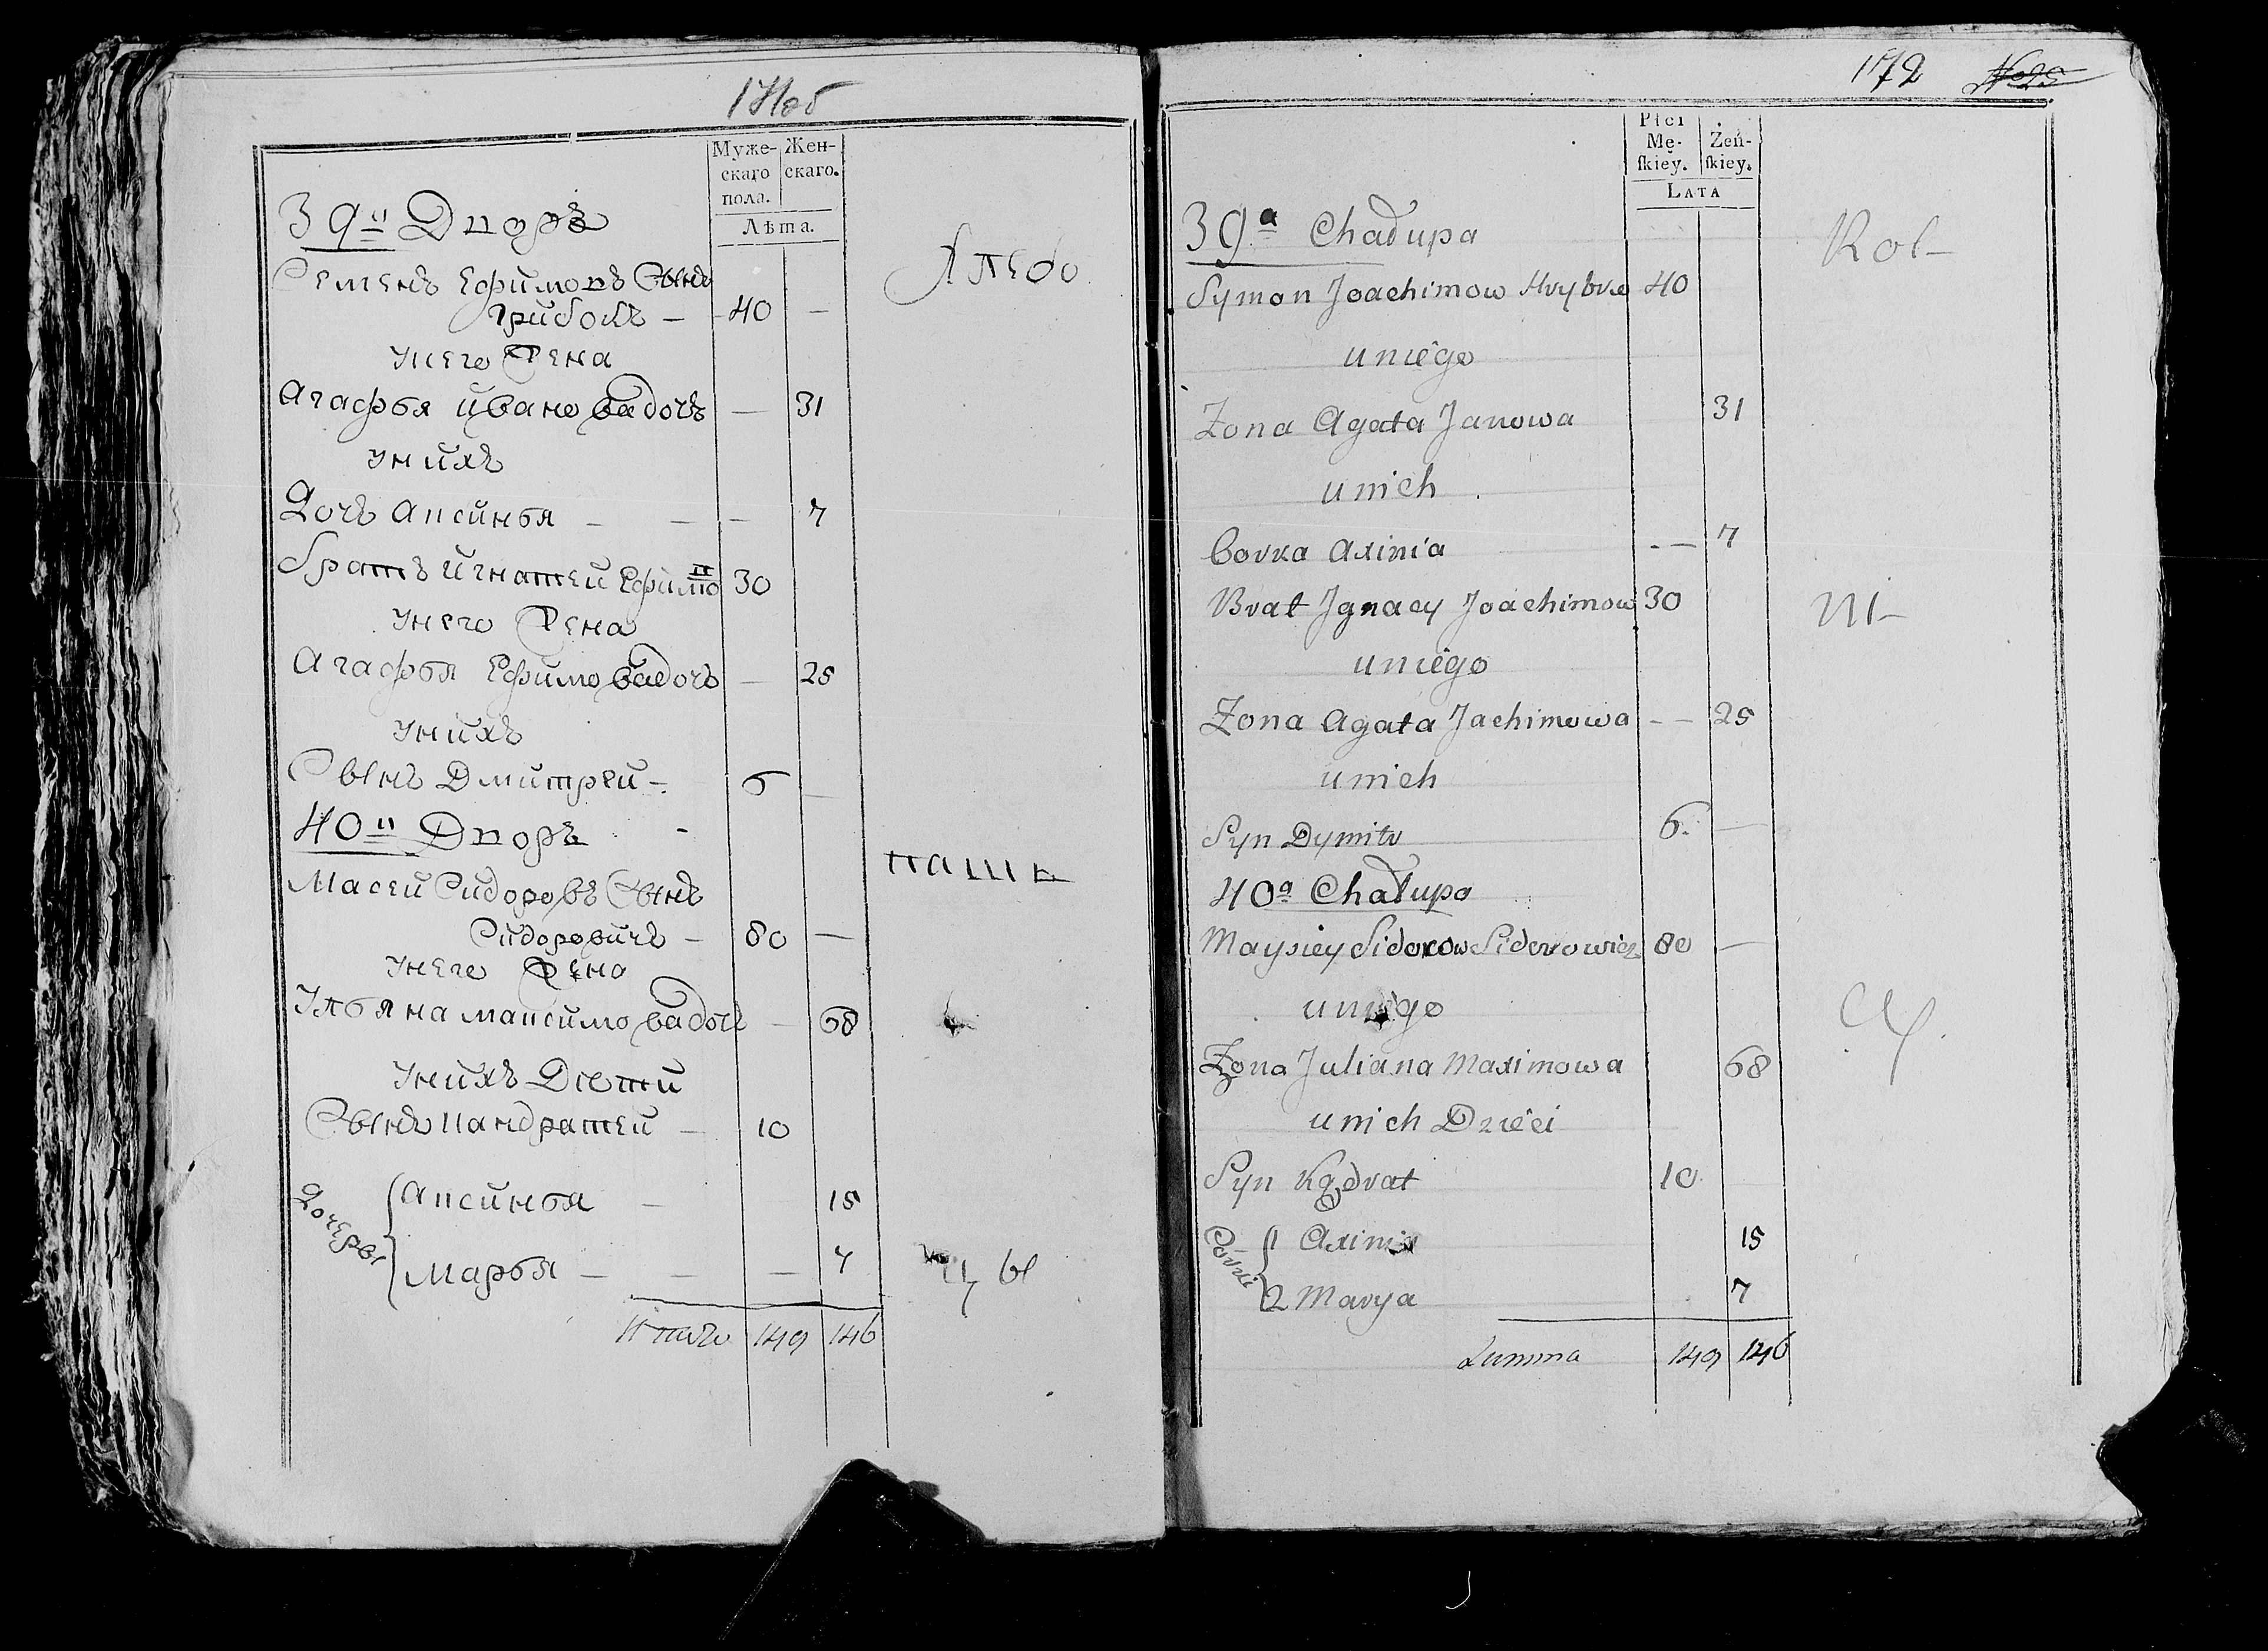 171об
Муже-
скаго
пола.
Жен-
скаго.
Лѣта.
39й Дворъ
Семенъ Ефимовъ Сынъ
Грибокъ — 40 —
У него Жена
Агафья Иванова дочь — 31
У нихъ
Дочь Аксинья — — — 7
Братъ Игнатей Ефимов 30
У него Жена
Агафья Ефимова дочь — 25
У нихъ
Сынъ Дмитрей — 6 —
40й Дворъ
Масей Сидоровъ Сынъ
Сидоровичъ — 80 —
У него Жена
Ульяна Максимова дочь — 68
У нихъ Дети
Сынъ Кандратей — 10
Дочеры
Аксинья — 15
Марья — — — 7
Итого 149 146
Хлебо
паше
цы
172 №25
Płci
Mę-
ſkiey.
Żeń-
ſkiey.
Lata
39a Chałupa
Symon Joachimow Hrybok 40
u niego
Żona Agata Janowa 31
u nich
Corka Axinia — 7
Brat Jgnacy Joachimow 30
u niego
Żona Agata Jachimowa — — 25
u nich
Syn Dymitr 6. —
40a Chałupa
Maysiey Sidorow Sidorowicz 80 —
u niego
Żona Juliana Maximowa 68
u nich Dzieci
Syn Kądrat 10
Corki
1 Axinia 15
2 Marya 7
Summa 149 146
Rol-
ni-
cy.